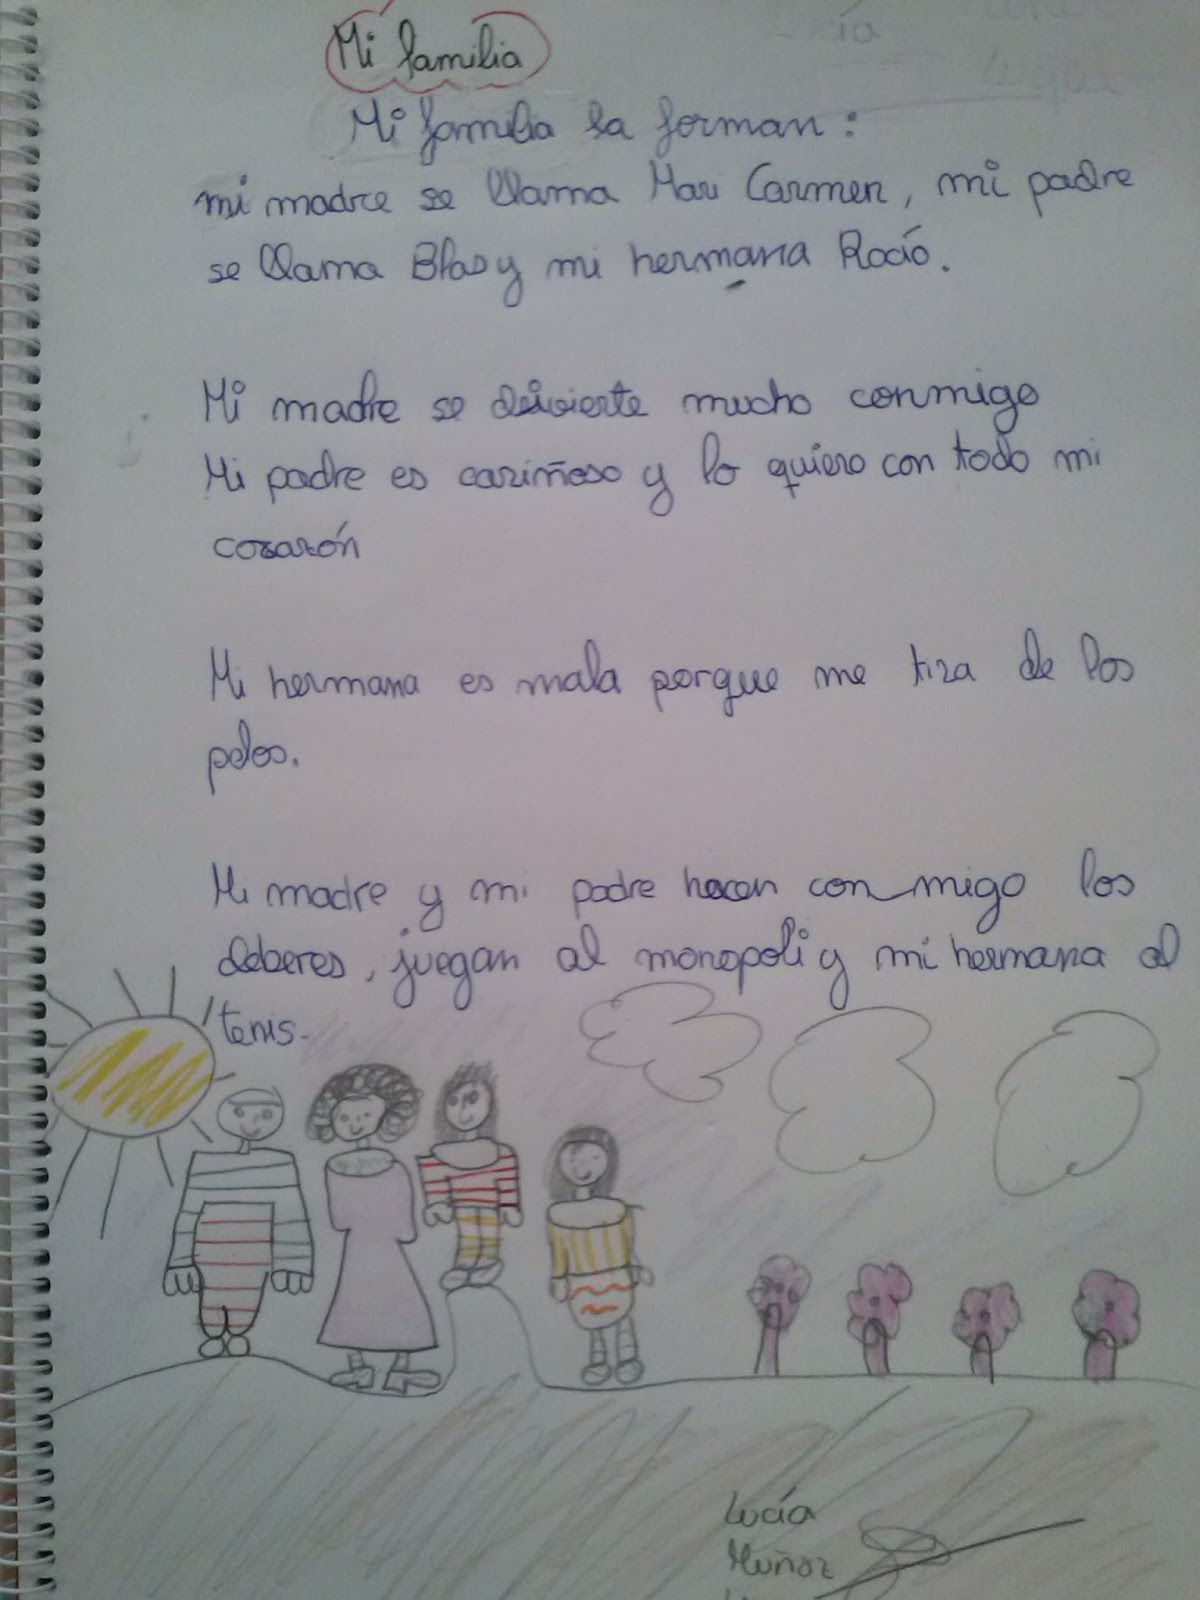 Mi familia
Mi familia la forman:
mi madre se llama Mari Carmen, mi padre
se llama Blas y mi hermana Rocío.
Mi madre se deivierte mucho conmigo
Mi padre es cariñoso y lo quiero con todo mi
corazón
Mi hermana es mala porque me tira de los
pelos.
Mi madre y mi padre hacen conmigo los
deberes, juegan al monopoli y mi hermana al
tenis.
Lucía
Muñoz